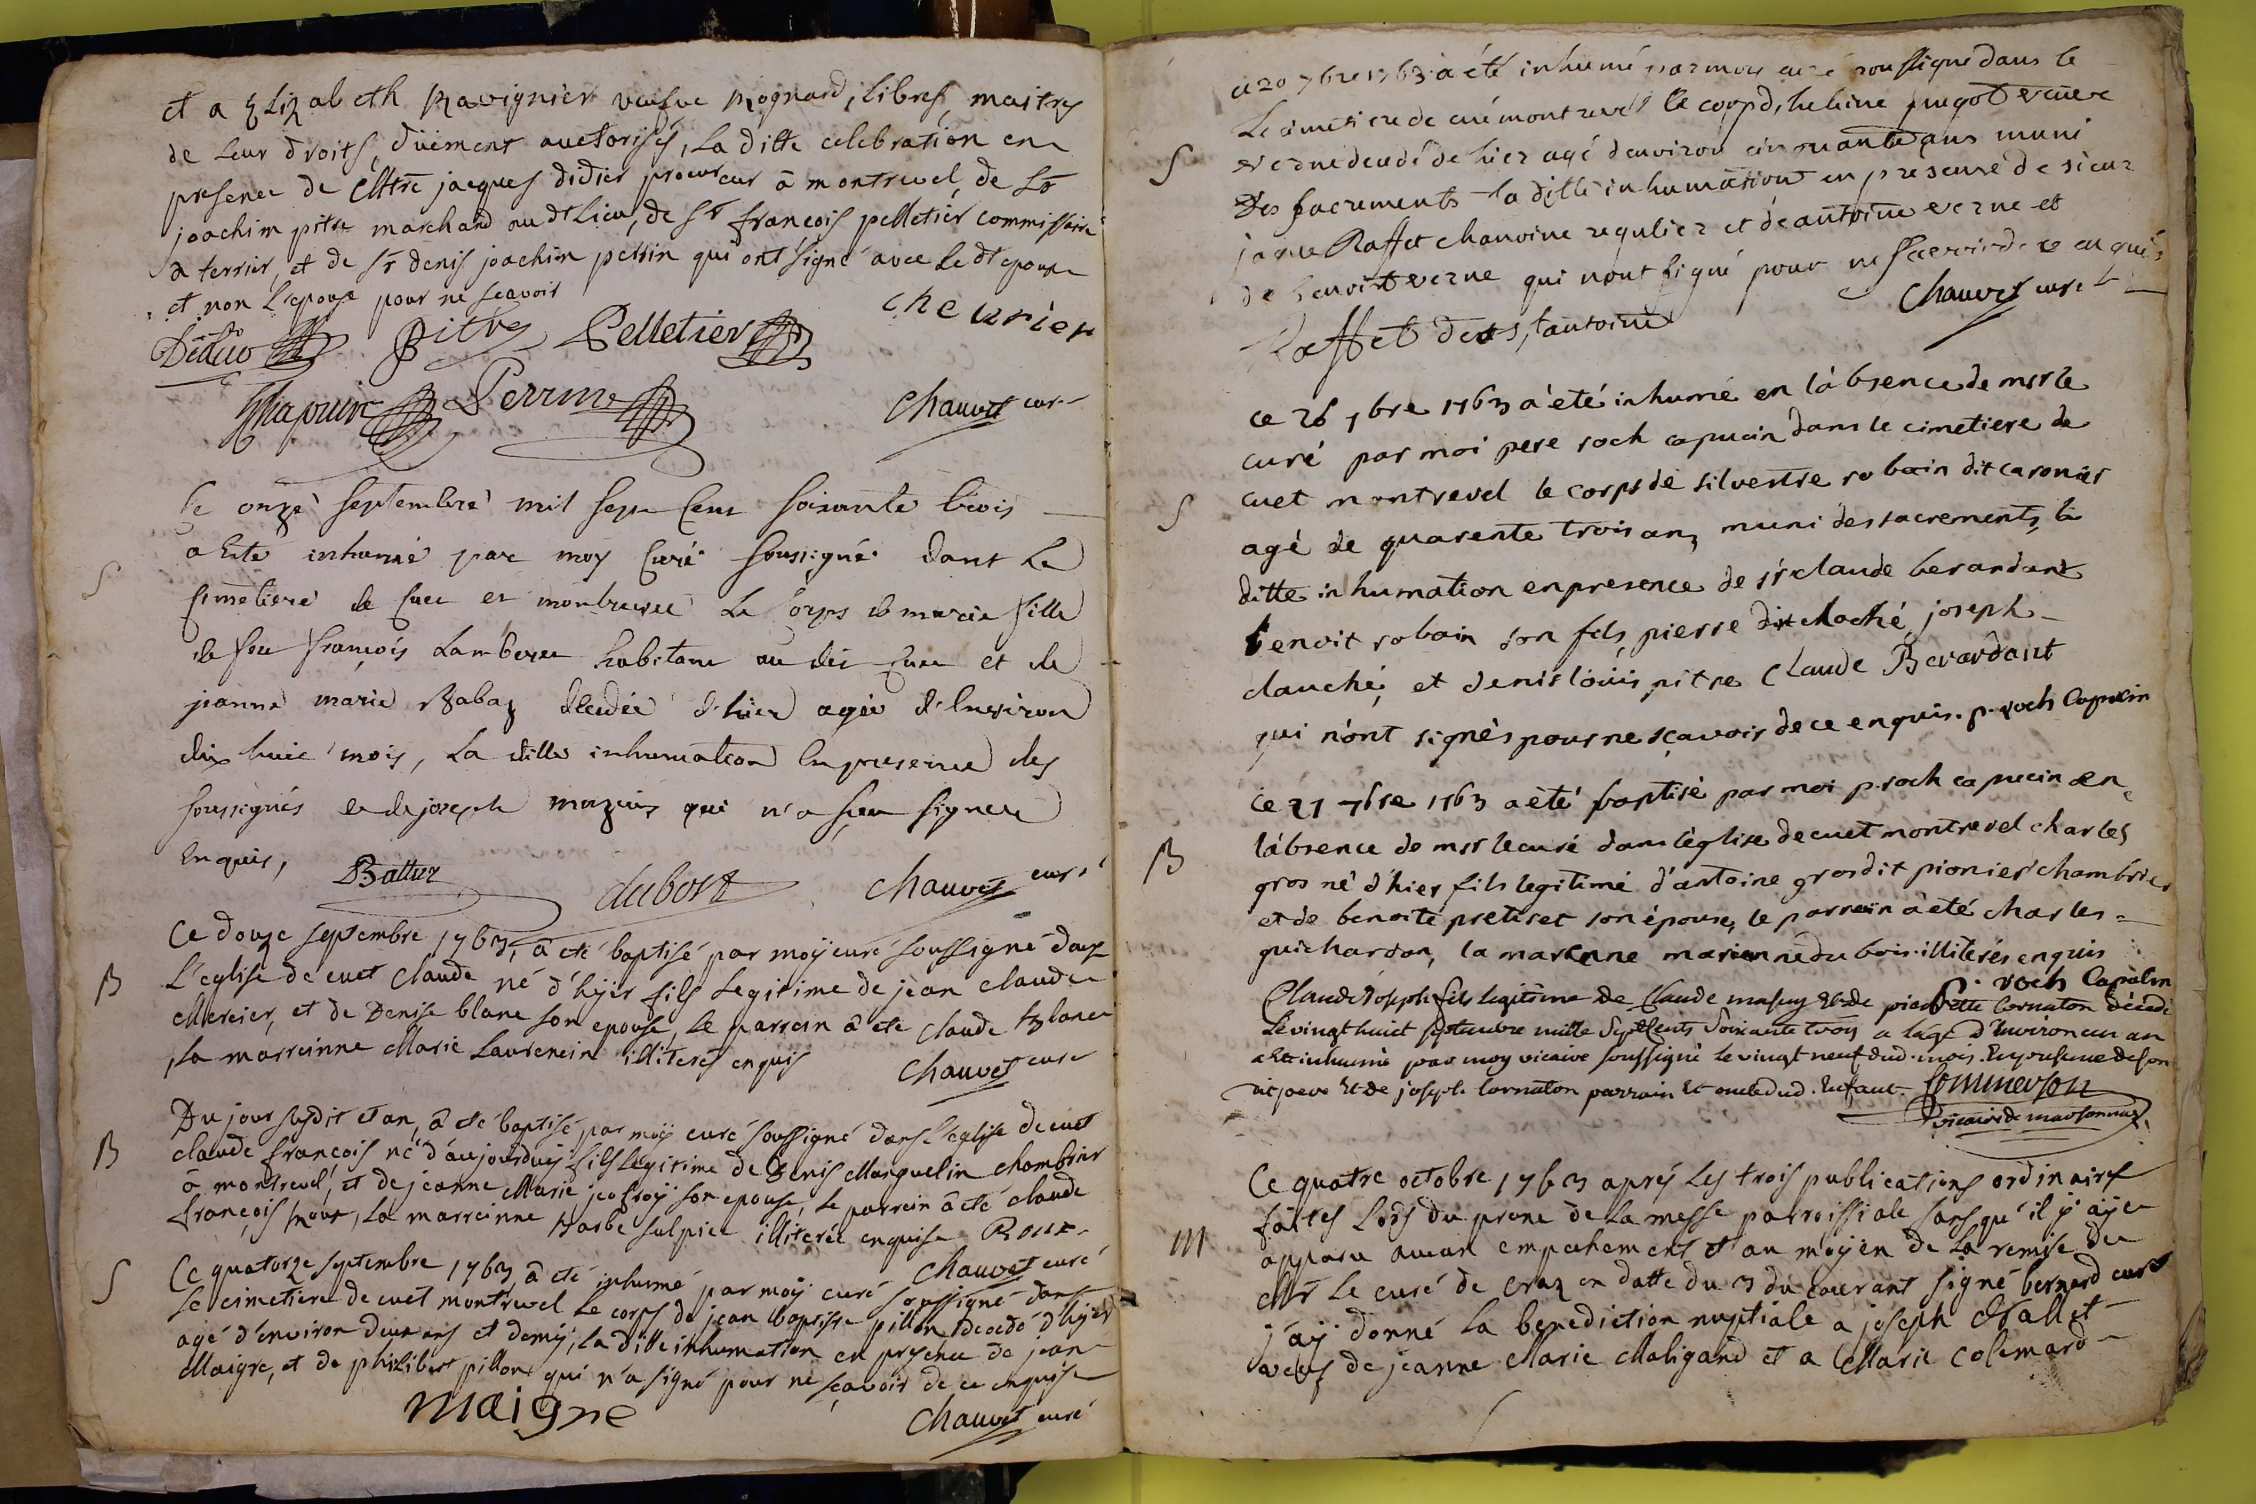 et a Elizabeth Ravignier veufue Rognard, libres maitres
de leur droits, düement auctorisés, la ditte celebration en
presence de Mtre jacques didier procureur â montrevel, de Sr
joachim pitre marchand au dt lieu, de Sr francois pelletier commissaire
a terrier, et de Sr denis joachim perrin qui ont signé avec le dt epoux
et non l'epouse pour ne scavoir
cheurier
Didier Pitre Pelletier
Chapuis Perrin Chauvet curé
Le onze Septembre mil Sept Cent Soixante trois
a Eté inhumé par moy Curé Soussigné dans Le
Cimetiere de Cuet et montrevel Le Corps de marie fille
de feu françois Lambert habitant au dit Cuet et de
jeanne marie Rabaz decedée d'hier agée d'Environ
dix huit mois, La ditte inhumation En presence des
Soussignés et de joseph mazuis qui n'a sçeu signer
Enquis, Battur dubost Chauvet curé
B
Ce douze septembre 1763, â eté baptisé par moÿ curé soussigné dans
L'eglise de cuet Claude né d'hÿer fils legitime de jean claude
Mercier, et de Denise blanc son epouse, le parrein â eté claude blanc
la marreinne Marie Laurencin illiterés enquis
Chauvet curé
B
Du jour susdit et an, â eté baptisé par moÿ curé soussigné dans l'eglise de cuet
claude francois né d'aujourduy fils legitime de Denis Marguelin chambrier
â montrevel, et de jeanne Marie jeofroÿ son epouse, le parrein â eté claude
françois roux, la marreinne barbe sulpice illiterée enquise Roux
Chauvet curé
S
Ce quatorze septembre 1763 â eté inhumé par moÿ curé soussigné dans
le cimetiere de cuet montrevel le corps de jean baptiste pillon decedé d'hÿer
agé d'environ deux ans et demÿ, la ditte inhumation en presence de jean
Maigre, et de philibert pillon qui n'a signé pour ne sçavoir de ce enquis
maigre
Chauvet curé
ce 20 7bre 1763 a été inhumé par moy curé soussigné dans le
Le cimetiere de cuét montrevel le corps d, helaine pugot veuve
S
verne decedé de hier agé denviron cinquante ans muni
Des sacrements la ditte inhumation en presence de sieur
jaque Raffet chanoine regulier et de antoine verne et
de benoit verne qui nont signé pour ne scavoir de ce enquis
Chauvet curé
Raffet de St, antoine
ce 26 7bre 1763 a été inhumé en l'absence de msr le
curé par moi pere roch capucin dans le cimetiere de
cuet montrevel le corps de silvestre robain dit caronier
S
agé de quarente trois ans muni des sacrements, la
ditte inhumation en presence de sr claude berardant
benoit robain son fils, pierre dit claché joseph
clauché, et denis loüis pitre Claude Berardant
qui n'ont signés pour ne sçavoir de ce enquis. p. roch Capucin
ce 27 7bre 1763 a été baptisé par moi p. roch capucin en
l'absence de msr le curé dans l'église de cuet montrevel charles
B
gros né d'hier fils legitime d'antoine gros dit pionier chambrier
et de benoite pretiset son épouse, le parrein a été charles
guichardon, la marenne marianne du bois illiterés enquis
p. roch Capucin
Claude Joseph fils legitime de Claude masuy et de pierrette Cornaton décédé
Le vingt huict septembre mille Sept Cents Soixante trois a l'âge d'Environ un an
a Eté inhumé par moy vicaire soussigné le vingt neuf dud. mois. En presence de son
dit pere Et de joseph Cornaton parrain Et oncle dud. Enfant. Commerson
vicaire de marsonnas
Ce quatre octobre 1763 aprés les trois publications ordinaires
faites lors du prone de la messe parroissiale sans qu'il ÿ aÿe
m
apparu aucun empechement et au moÿen de la remise de
Mr le curé de craz en datte du 3 du courant signé bernard curé
j'aÿ donné la benediction nuptiale a joseph Nallet
veuf de jeanne Marie Maligand et a Marie Colemard